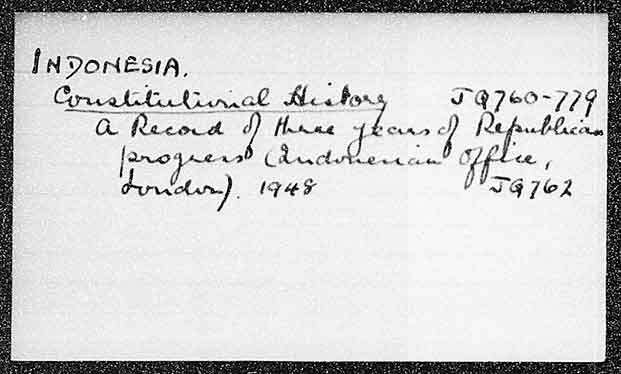 INDONESIA.
Constitutional History JQ760-779
A Record of three years of Republican
progress (Indonesian Office,
London). 1948 JQ762